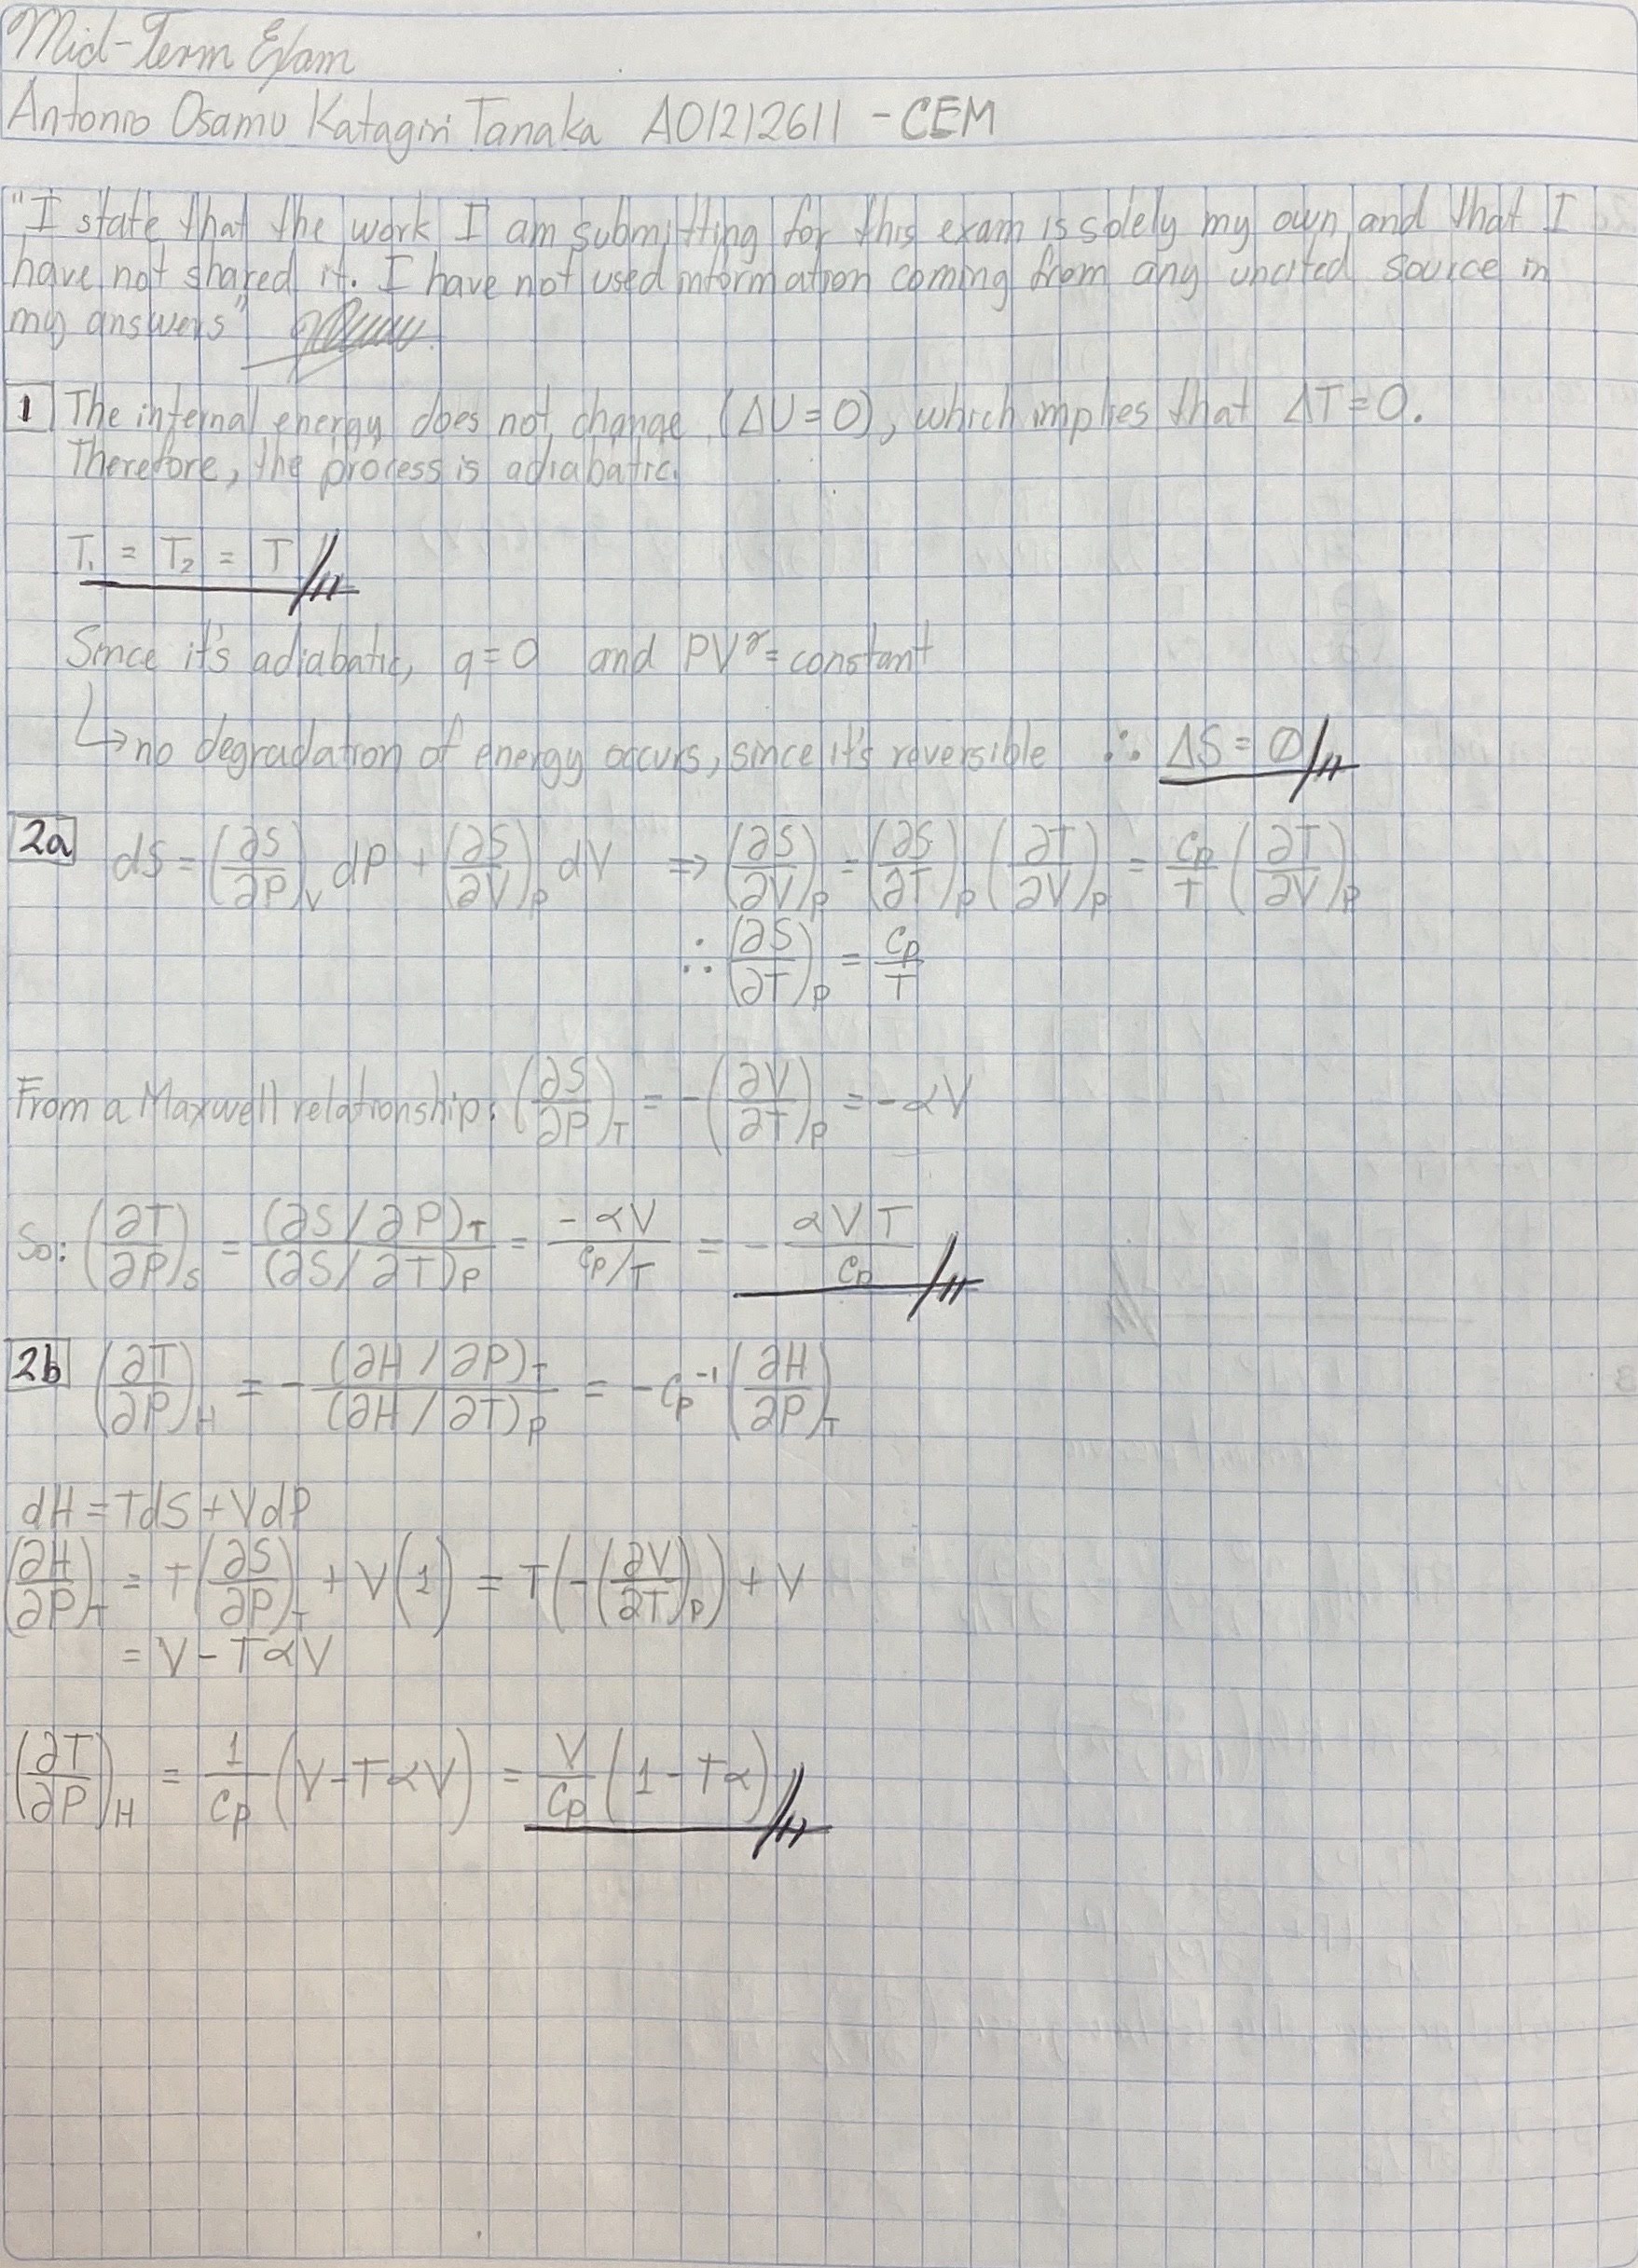 Mid-Term Exam
Antonio Osamu Katagiri Tanaka A01212611 - CEM
"I state that the work I am submitting for this exam is solely my own and that I
have not shared it. I have not used information coming from any uncited source in
my answers"
1 The internal energy does not change (ΔU = 0), which implies that ΔT = 0.
Therefore, the process is adiabatic.
T₁ = T₂ = T //
Since it's adiabatic, q = 0 and PV^γ = constant
↳ no degradation of energy occurs, since it's reversible ∴ ΔS = 0 //
2a dS = (∂S/∂P)_V dP + (∂S/∂V)_P dV ⇒ (∂S/∂V)_P = (∂S/∂T)_P (∂T/∂V)_P = Cp/T (∂T/∂V)_P
∴ (∂S/∂T)_P = Cp/T
From a Maxwell relationship: (∂S/∂P)_T = -(∂V/∂T)_P = -αV
So: (∂T/∂P)_S = (∂S/∂P)_T / (∂S/∂T)_P = -αV / (Cp/T) = - αVT / Cp //
2b (∂T/∂P)_H = - (∂H/∂P)_T / (∂H/∂T)_P = -Cp⁻¹ (∂H/∂P)_T
dH = TdS + VdP
(∂H/∂P)_T = T(∂S/∂P)_T + V(1) = T(-(∂V/∂T)_P) + V
= V - TαV
(∂T/∂P)_H = 1/Cp (V - TαV) = V/Cp (1 - Tα) //